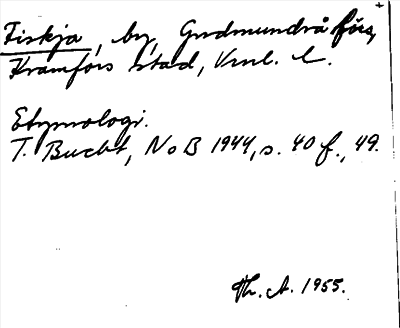 Fiskja, by, Gudmundrå förs,
Kramfors stad, Vnl. l.
Etymologi.
T. Bucht, NoB 1944, s. 40 f., 49.
Th. A. 1955.